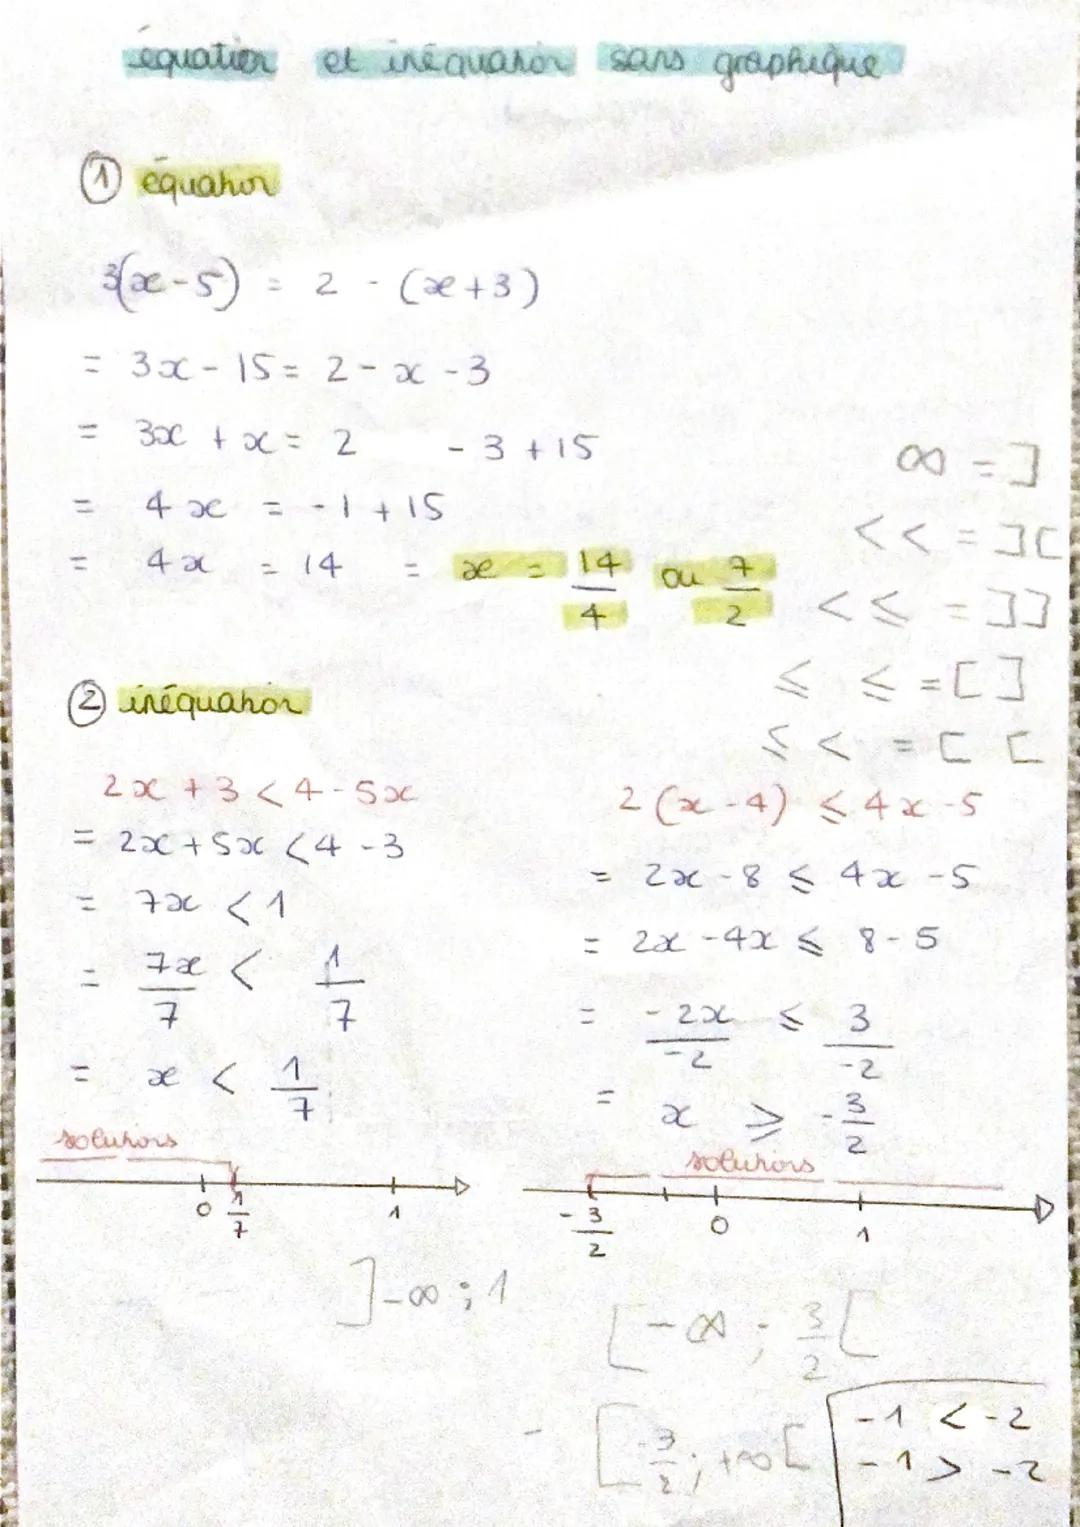 équation et inéquation sans graphique
① équation
3(x-5) = 2 - (x+3)
= 3x - 15 = 2 - x - 3
= 3x + x = 2 - 3 + 15
= 4x = -1 + 15
= 4x = 14 = x = 14/4 ou 7/2
∞ = ]
< < = ] [
< ⩽ = ] ]
⩽ ⩽ = [ ]
⩽ < = [ [
② inéquation
2x + 3 < 4 - 5x
= 2x + 5x < 4 - 3
= 7x < 1
= 7x/7 < 1/7
= x < 1/7
solutions
0 1/7 1
]-∞ ; 1
2(x-4) ⩽ 4x - 5
= 2x - 8 ⩽ 4x - 5
= 2x - 4x ⩽ 8 - 5
= -2x/-2 ⩽ 3/-2
= x ⩾ -3/2
solutions
-3/2 0 1
[-∞ ; 3/2 [
- [-3/2 ; +∞ [
-1 < -2
-1 > -2